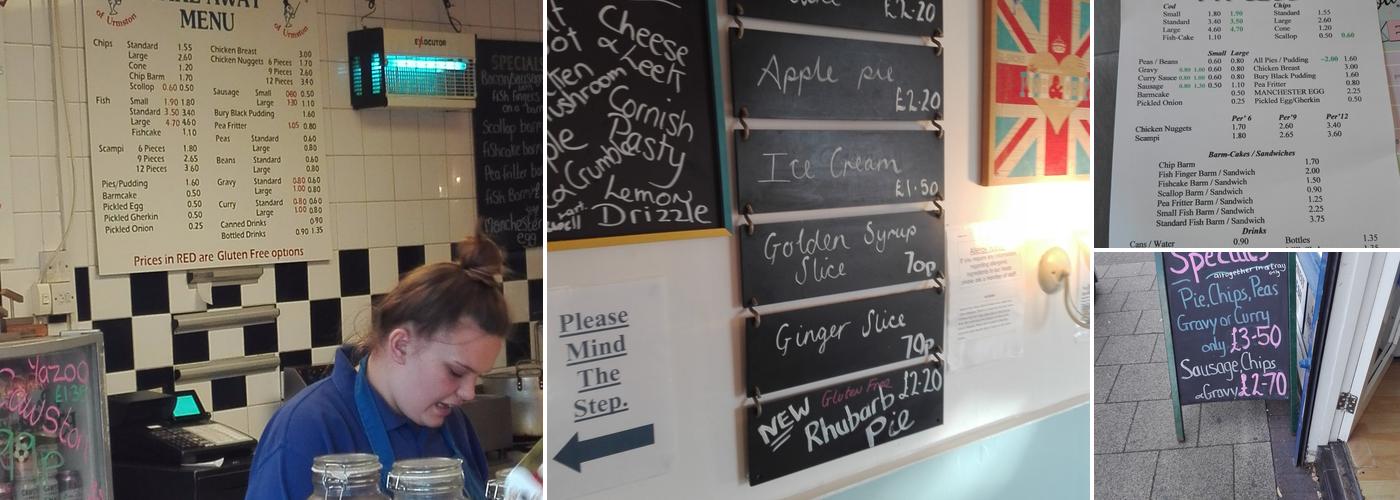 AWAY
MENU
of Urmston
of Urmston
Chips Standard 1.55
Large 2.60
Cone 1.20
Chip Barm 1.70
Scallop 0.60 0.50
Fish Small 1.90 1.80
Standard 3.50 3.40
Large 4.70 4.60
Fishcake 1.10
Scampi 6 Pieces 1.80
9 Pieces 2.65
12 Pieces 3.60
Pies/Pudding 1.60
Barmcake 0.50
Pickled Egg 0.50
Pickled Gherkin 0.50
Pickled Onion 0.25
Chicken Breast 3.00
Chicken Nuggets 6 Pieces 1.70
9 Pieces 2.60
12 Pieces 3.40
Sausage Small 0.80 0.50
Large 1.30 1.10
Bury Black Pudding 1.60
Pea Fritter 1.05 0.80
Peas Standard 0.60
Large 0.80
Beans Standard 0.60
Large 0.80
Gravy Standard 0.80 0.60
Large 1.00 0.80
Curry Standard 0.80 0.60
Large 1.00 0.80
Canned Drinks 0.90
Bottled Drinks 0.90 1.35
Prices in RED are Gluten Free options
EXOCUTOR
SPECIALS
Fish Fingers
on a barm
Scallop barm
Fishcake barm
Pea Fritter barm
Fish Barm
Manchester
egg
Yazoo
£1.35
Cheese
& Leek
Cornish
Pasty
& Crumble
Lemon
Drizzle
£2.20
Apple pie
£2.20
Ice Cream
£1.50
Golden Syrup
Slice 70p
Ginger Slice
70p
NEW Gluten Free £2.20
Rhubarb
Pie
Please
Mind
The
Step.
Cod
Small 1.80 1.90
Standard 3.40 3.50
Large 4.60 4.70
Fish-Cake 1.10
Chips
Standard 1.55
Large 2.60
Cone 1.20
Scallop 0.50 0.60
Small Large
Peas / Beans 0.60 0.80
Gravy 0.80 1.00 0.60 0.80
Curry Sauce 0.80 1.00 0.60 0.80
Sausage 0.80 1.30 0.50 1.10
Barmcake 0.50
Pickled Onion 0.25
All Pies / Pudding -2.00 1.60
Chicken Breast 3.00
Bury Black Pudding 1.60
Pea Fritter 0.80
MANCHESTER EGG 2.25
Pickled Egg/Gherkin 0.50
Per' 6 Per'9 Per'12
Chicken Nuggets 1.70 2.60 3.40
Scampi 1.80 2.65 3.60
Barm-Cakes / Sandwiches
Chip Barm 1.70
Fish Finger Barm / Sandwich 2.00
Fishcake Barm / Sandwich 1.50
Scallop Barm / Sandwich 0.90
Pea Fritter Barm / Sandwich 1.25
Small Fish Barm / Sandwich 2.25
Standard Fish Barm / Sandwich 3.75
Drinks
Cans / Water 0.90 Bottles 1.35
Specials
altogether in a tray
only
Pie, Chips, Peas
Gravy or Curry
only £3-50
Sausage, Chips
& Gravy £2-70